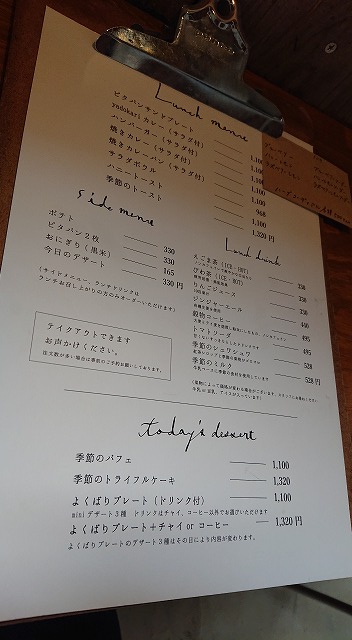 Lunch menu
ピタパンサンドプレート
yadokariカレー（サラダ付）
ハンバーガー（サラダ付）
焼きカレー（サラダ付）
焼きカレーパン（サラダ付）
サラダボウル
ハニートースト 968
季節のトースト 1,320円
Side menu
ポテト 330
ピタパン２枚 330
おにぎり（黒米） 165
今日のデザート 330円
（サイドメニュー、ランチドリンクは
ランチお召し上がりの方のみオーダーいただけます）
テイクアウトできます
お声がけください。
注文数が多い場合は事前のご予約お願いしております。
Lunch drink
えごま茶（ICE・HOT） 330
びわ茶（ICE・HOT） 330
りんごジュース 330
ジンジャーエール
穀物コーヒー 495
トマトソーダ 495
季節のシュワシュワ 528
季節のミルク 528円
today's dessert
季節のパフェ 1,100
季節のトライフルケーキ 1,320
よくばりプレート（ドリンク付） 1,100
miniデザート３種 ドリンクはチャイ、コーヒー以外でお選びいただけます
よくばりプレート＋チャイ or コーヒー 1,320円
よくばりプレートのデザート３種はその日により内容が変わります。